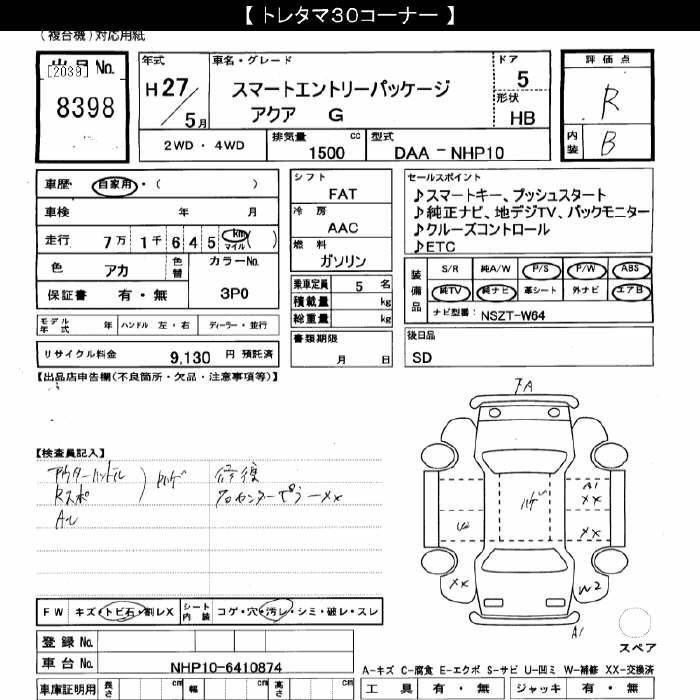 【 トレタマ30コーナー 】
(複合機)対応用紙
出品No. [2039]
8398
年式
H27/5月
車名・グレード
スマートエントリーパッケージ
アクア G
ドア
5
形状
HB
評価点
R
内装 B
2WD ・ 4WD
排気量 cc
1500
型式
DAA - NHP10
車歴 自家用・( )
車検 年 月
走行 7万 1千 6 4 5 km マイル ( )
色 アカ 色替 カラーNo.
3P0
保証書 有・無
シフト
FAT
冷房
AAC
燃料
ガソリン
乗車定員 5 名
積載量 kg
総重量 kg
書類期限
月 日
セールスポイント
♪スマートキー、プッシュスタート
♪純正ナビ、地デジTV、バックモニター
♪クルーズコントロール
♪ETC
装備品
S/R 純A/W P/S P/W ABS
純TV 純ナビ 革シート 外ナビ エアB
ナビ型番: NSZT-W64
モデル年式 年 ハンドル 左・右 ディーラー・並行
リサイクル料金 9,130 円 預託済
後日品
SD
【出品店申告欄(不良箇所・欠品・注意事項等)】
【検査員記入】
アウターハンドル
Rスポ
ハゲ
修復
フロセンターピラーxx
FA
A1
xx
ハゲ
U2
xx
xx
W2
A1
スペア
FW キズ・トビ石・割レX シート内装 コゲ・穴・汚レ・シミ・破レ・スレ
登録No.
車台No. NHP10-6410874
車庫証明用 長さ cm 幅 cm 高さ cm
A-キズ C-腐食 E-エクボ S-サビ U-凹ミ W-補修 XX-交換済
工具 有・無 ジャッキ 有・無